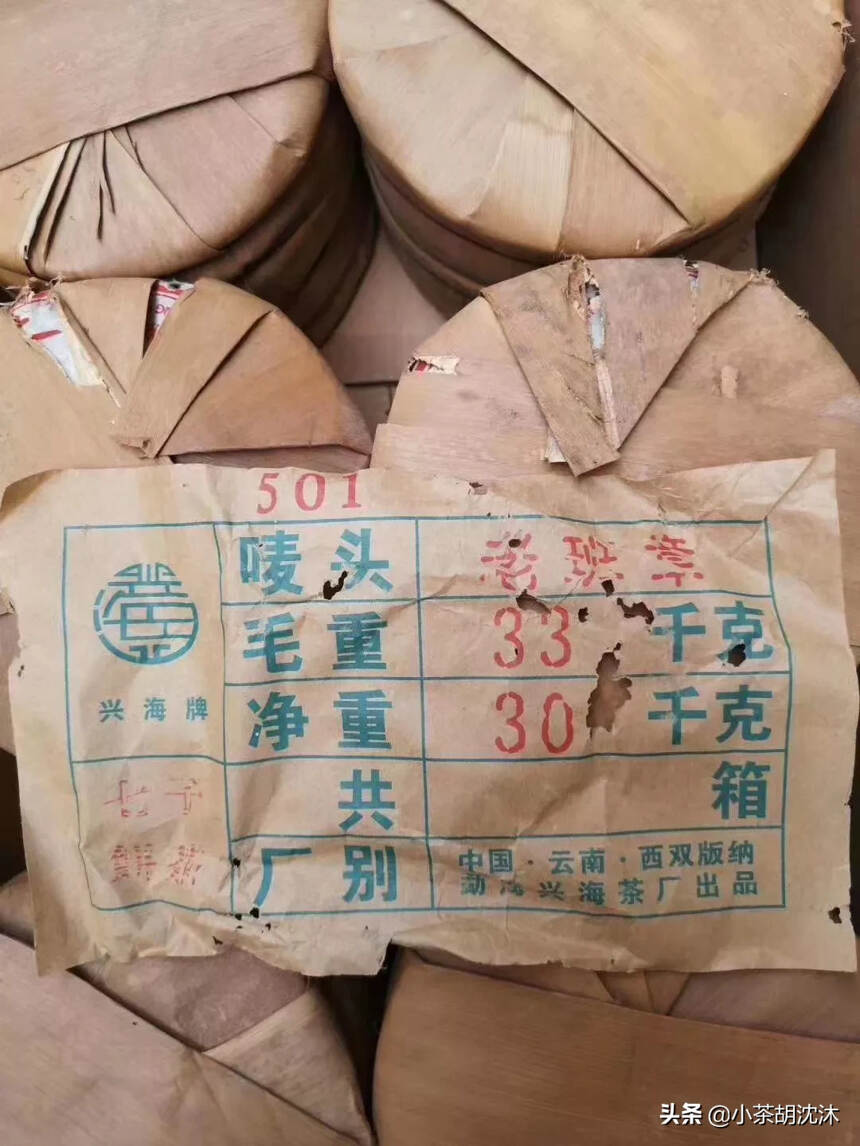 501
唛头 老班章
毛重 33 千克
净重 30 千克
兴海牌
共 箱
厂别
中国·云南·西双版纳
勐海兴海茶厂出品
头条 @小茶胡沈沐